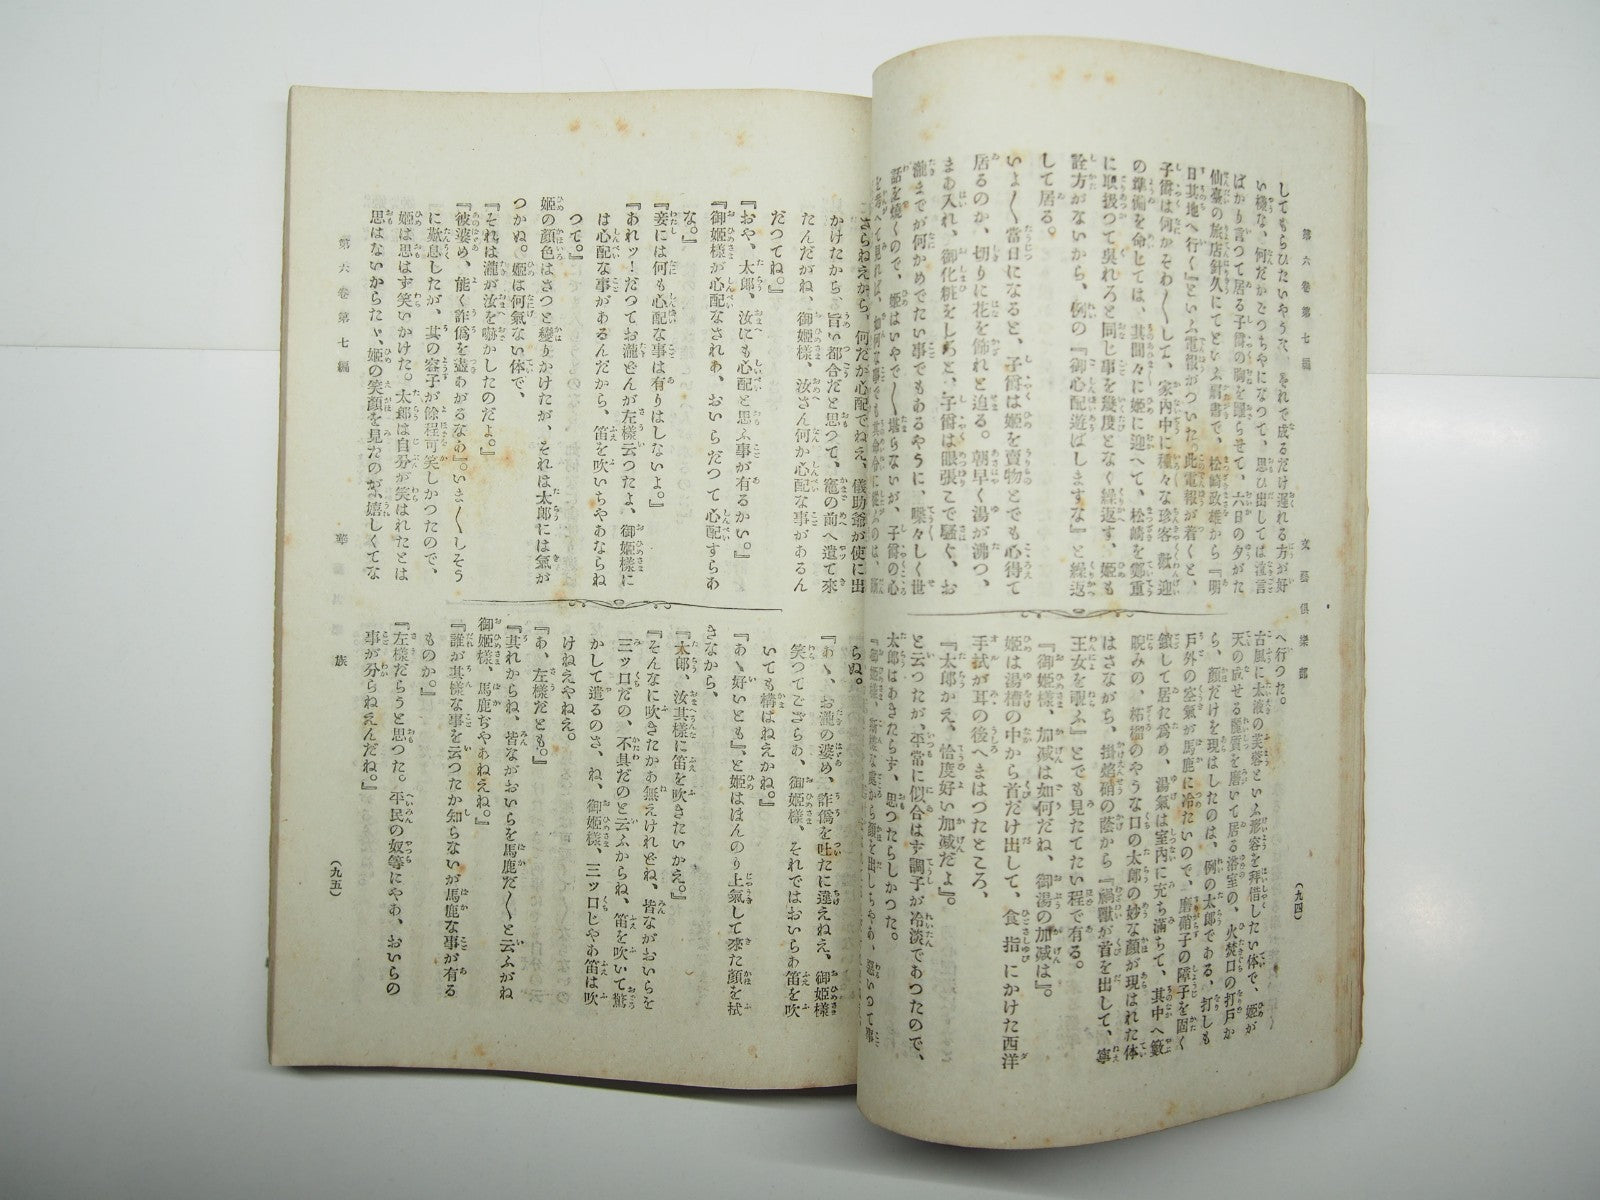 第六卷第七編
文藝俱樂部
(九四)
してもらひたいやうな、それで成るだけ遲れる方が好
い樣な、何だかごつちやになつて、思ひ出しては溜言
ばかり言つて居る子爵の胸を躍らせて、六日の夕がた
仙臺の旅店針久にてといふ肩書で、松崎政雄から『明
日其地へ行く』といふ電報がついた。此電報が着くと、
子爵は何かそわ〱して、家內中に種々な珍客歡迎
の準備を命じては、其間々に姬に迎へて、松崎を鄭重
に取扱つて吳れろと同じ事を幾度となく繰返す、姬も
詮方がないから、例の『御心配遊ばしますな』と繰返
して居る。
いよ〱當日になると、子爵は姬を賣物とでも心得て
居るのか、切りに花を飾れと迫る。朝早く湯が沸つ、
まあ入れ、御化粧をしろと、子爵は眼張こで騷ぐ、お
瀧までが何かめでたい事でもあるやうに、喋々しく世
話を燒くので、姬はいやで〱堪らないが、子爵の心
へ行つた。
古風に太液の芙蓉といふ形容を拜借したい体で、姬が
天の成せる麗質を磨いて居る浴室の、火焚口の打戶か
ら、顏だけを現はしたのは、例の太郎である、打しも
戶外の空氣が馬鹿に冷たいので、磨硝子の障子を固く
鎖して居た爲め、湯氣は室內に充ち滿ちて、其中へ籔
睨みの、柘榴のやうな口の太郎の妙な顏が現はれた体
はさながら、掛焰硝の蔭から『禍獸が首を出して、寧
王女を覗ふ』とでも見たてたい程で有る。
『御姬樣、加減は如何だね、御湯の加減は』。
姬は湯槽の中から首だけ出して、食指にかけた西洋
手拭が耳の後へまはつたところ、
『太郎かえ、恰度好い加減だよ』。
と云つたが、平常に似合はす調子が冷淡であつたので、
太郎はあきたらす、思つたらしかつた。
さらねえから、何だか心配でねえ、儀助爺が使に出
かけたから、旨い都合だと思つて、竈の前へ遣て來
たんだがね、御姬樣、汝さん何か心配な事があるん
だつてね。』
『おや、太郎、汝にも心配と思ふ事が有るかい。』
『御姬樣が心配なされあ、おいらだつて心配すらあ
な。』
『妾には何も心配な事は有りはしないよ。』
『あれッ！だつてお瀧どんが左樣云つたよ、御姬樣に
は心配な事があるんだから、笛を吹いちやあならね
つて。』
姬の顏色はさつと變りかけたが、それは太郎には氣が
つかぬ。姬は何氣ない体で、
『それは瀧が汝を嚇かしたのだよ。』
『彼婆め、能く詐僞を盡あがるなあ』。いま〱しそう
に歎息したが、其の容子が餘程可笑しかつたので、
姬は思はず笑いかけた。太郎は自分が笑はれたとは
思はないからたゝ、姬の笑顏を見たのが、嬉しくてな
らぬ。
『あゝ、お瀧の婆め、詐僞を吐たに違えねえ、御姬樣
笑つてござらあ、御姬樣、それではおいらあ笛を吹
いても構はねえかね。』
『あゝ好いとも』、と姬はほんのり上氣して來た顏を拭
きながら、
『太郎、汝其樣に笛を吹きたいかえ。』
『そんなに吹きたかあ無えけれどね、皆ながおいらを
三ッ口だの、不具だのと云ふからね、笛を吹いて驚
かして遣るのさ、ね、御姬樣、三ッ口じやあ笛は吹
けねえやねえ。
『あ、左樣だとも。』
『其れからね、皆ながおいらを馬鹿だ〱と云ふがね
御姬樣、馬鹿ぢやあねえね。』
『誰が其樣な事を云つたか知らないが馬鹿な事が有る
ものか。』
『左樣だらうと思つた。平民の奴等にやあ、おいらの
事が分らねえんだね。』
第六卷第七編
族
(九五)